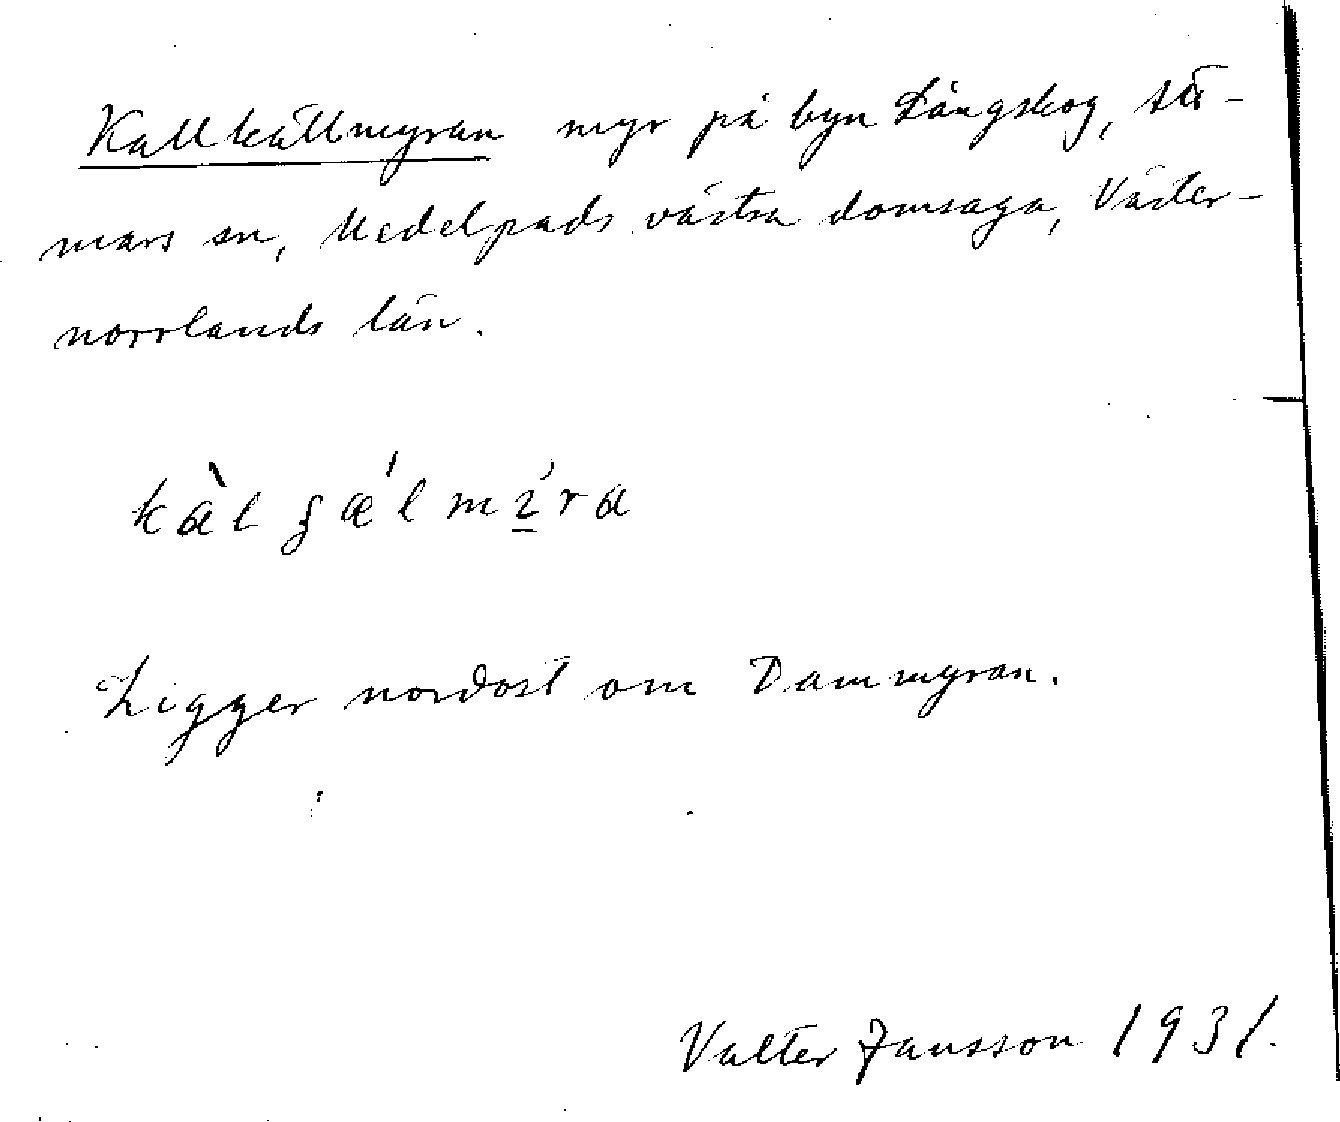 Kallkällmyran myr på byn Långskog, Stö-
mars sn, Medelpads västra domsaga, Väster-
norrlands län.
Ligger nordost om Dammyran.
Valter Jansson 1931.